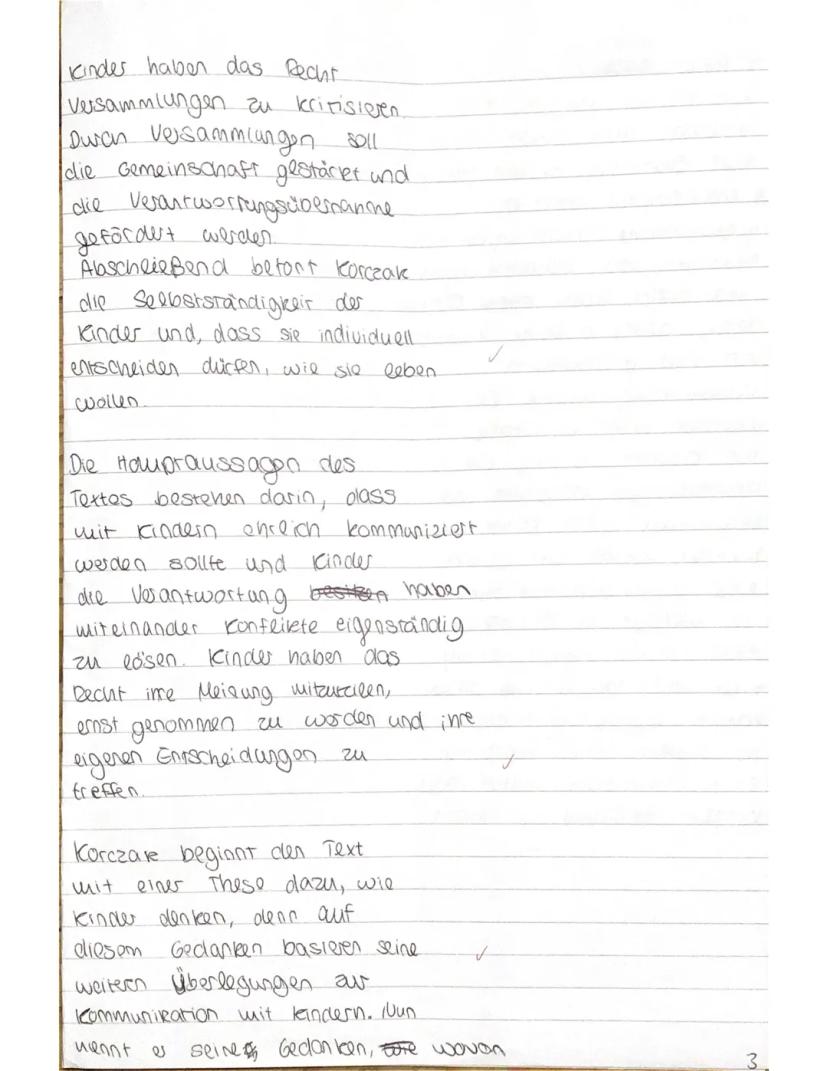 Kinder haben das Recht
Versammlungen zu kritisieren.
Durch Versammlungen soll
die Gemeinschaft gestärket und
die Verantwortungsübernahme
gefördert werden.
Abschließend betont Korczak
die Selbstständigkeit der
Kinder und, dass sie individuell
entscheiden dürfen, wie sie leben
wollen.
Die Hauptaussagen des
Textes bestehen darin, dass
mit Kindern ehrlich kommuniziert
werden sollte und Kinder
die Verantwortung besitzen haben
miteinander Konflikte eigenständig
zu lösen. Kinder haben das
Recht ihre Meinung mitzuteilen,
ernst genommen zu werden und ihre
eigenen Entscheidungen zu
treffen.
Korczak beginnt den Text
mit einer These dazu, wie
Kinder denken, denn auf
diesem Gedanken basieren seine
weitern Überlegungen zur
Kommunikation mit Kindern. Nun
nennt er seine Gedanken, wovon
3